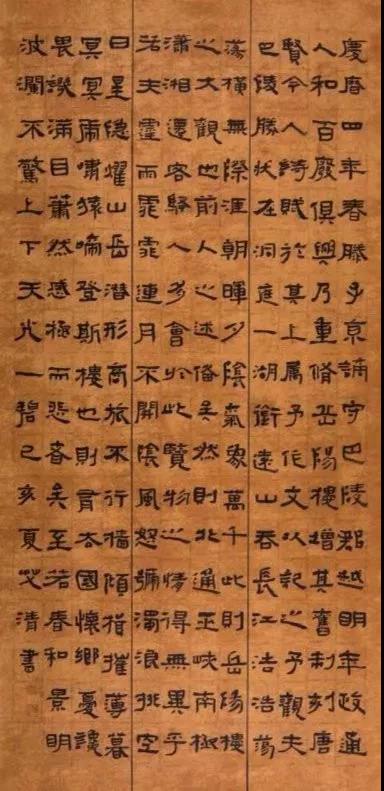 慶曆四年春滕子京謫守巴陵郡越明年政通
人和百廢俱興乃重脩岳陽樓增其舊制刻唐
賢今人詩賦於其上属予作文以記之予觀夫
巴陵勝狀在洞庭一湖銜遠山吞長江浩浩蕩
蕩橫無際涯朝暉夕陰氣象萬千此則岳陽樓
之大觀也前人之述備矣然則北通巫峽南極
瀟湘遷客騷人多會於此覽物之情得無異乎
若夫霪雨霏霏連月不開陰風怒號濁浪排空
日星隱耀山岳潛形商旅不行檣傾楫摧薄暮
冥冥虎嘯猿啼登斯樓也則有去國懷鄉憂讒
畏譏滿目蕭然感極而悲者矣至若春和景明
波瀾不驚上下天光一碧己亥夏艾清書